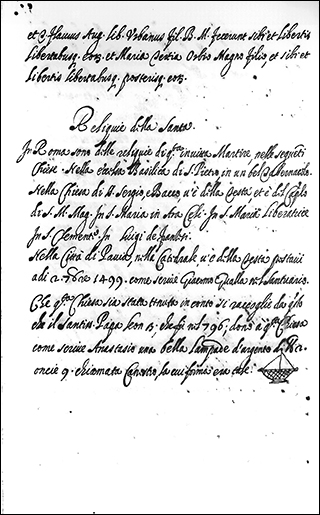 et C. Flavius Aug. lib. Urbanus fil. B. M. fecerunt sibi et libertis
libertabusq. eorz. et Maria Tertia Orbio Magno filio et sibi et
libertis libertabusq. posterisq. eorz.
Reliquie della Santa.
In Roma sono delle reliquie di qsta Martire nelle seguēti
Chiese. Nella Basilica di S. Pietro in un bel Tabernacolo.
Nella Chiesa di S. Sergio, e Bacco, v'è della Testa et è del
di S. M. Mag. In S. Maria in Ara Celi. In S. Maria Liberatrice
In S. Clemente. In Luigi de
Nella Città di Pavia, nella Catedrale v'è della Testa
a di 2. 7bre 1499. come scrive Giacomo Gualla nel Santuario.
Che qsta Chiesa sia stata tenuta in conto si raccoglie da qsto
che il Santiss. Papa Leon 3. nel 796, donò a qsta Chiesa
come scrive Anastasio una bella lampade d'argento di
oncie 9. chiamata Canestro, la cui forma era tale.